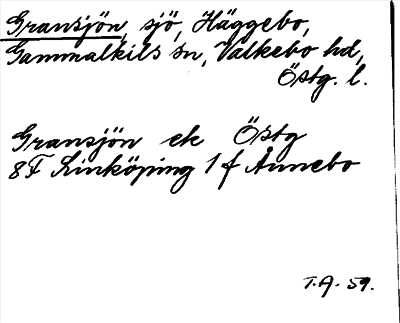 Gransjön, sjö, Häggebo,
Gammalkils sn, Valkebo hd,
Östg. l.
Gransjön ek Östg
8F Linköping 1f Ånnebo
T.A. 59.